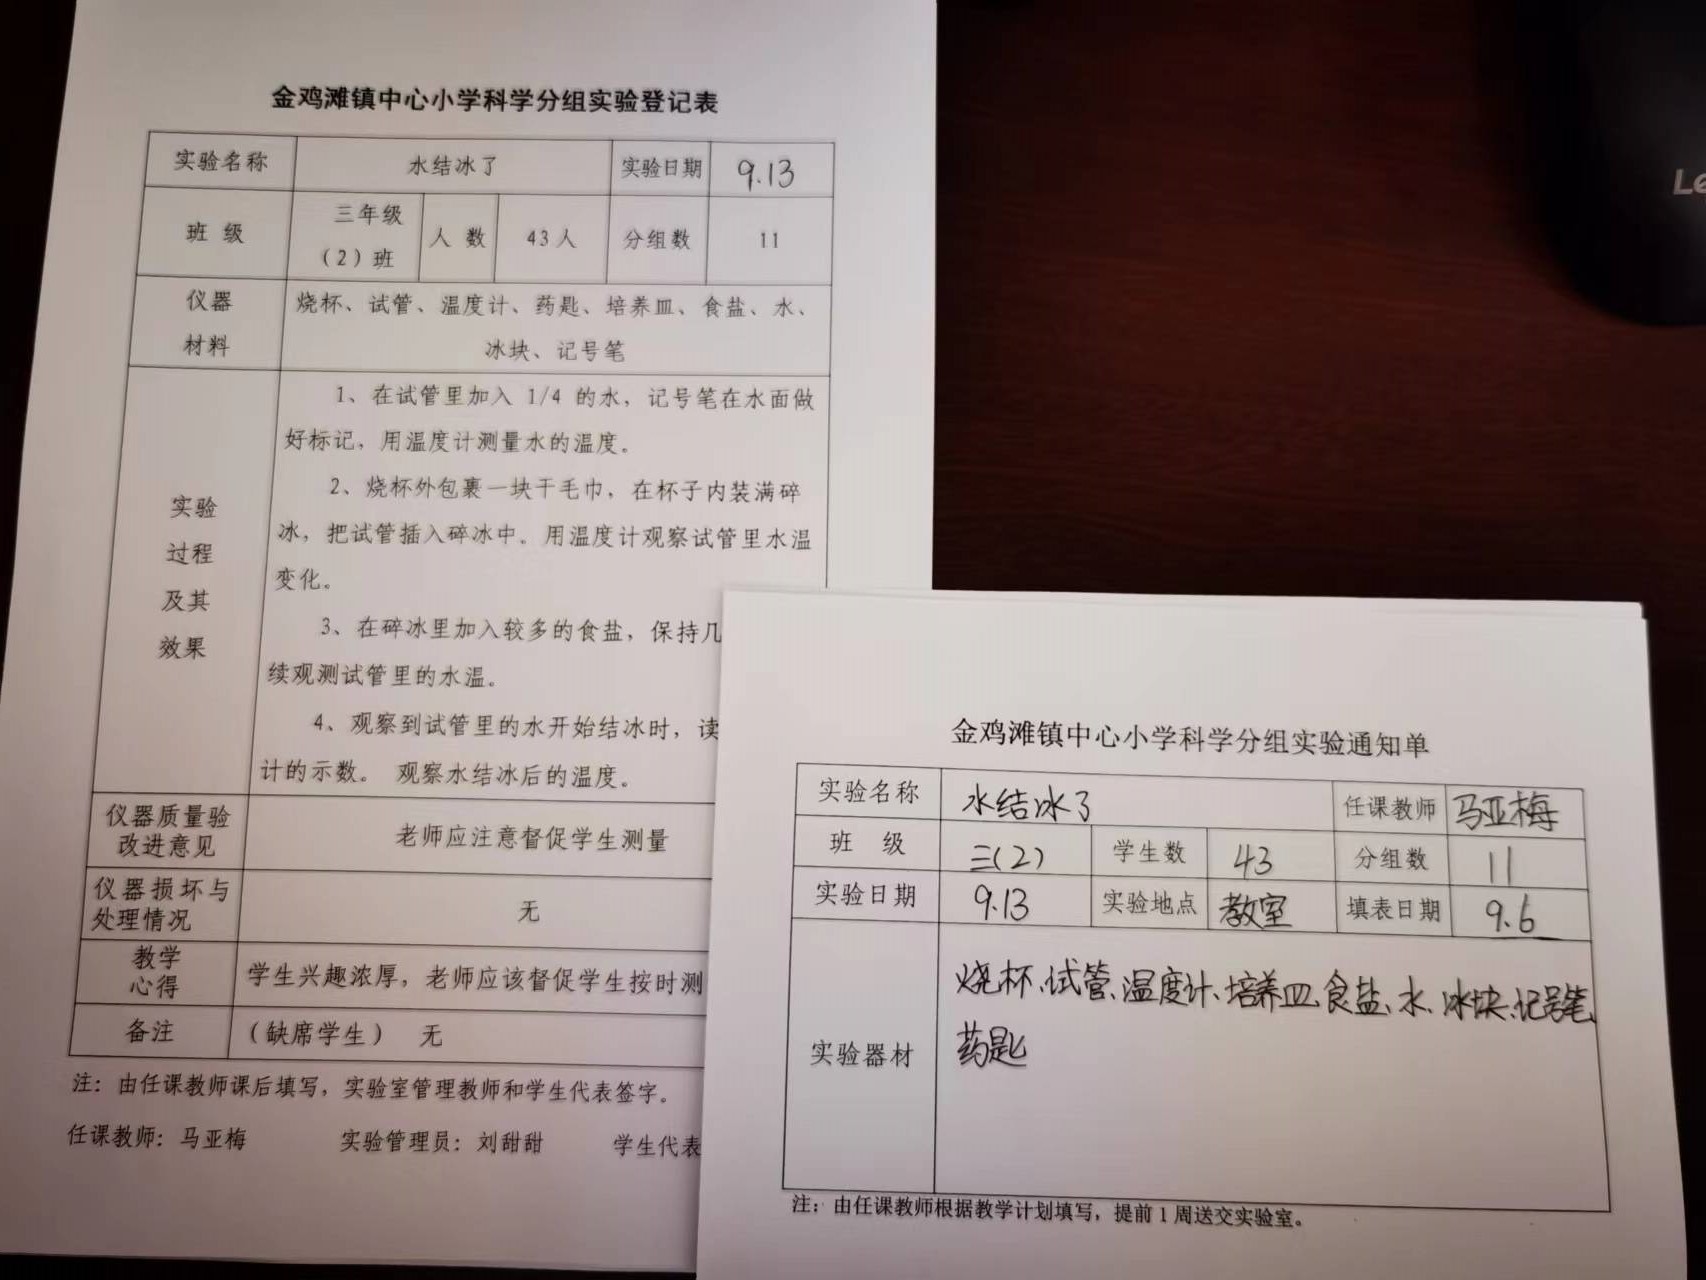 金鸡滩镇中心小学科学分组实验登记表
实验名称 水结冰了 实验日期 9.13
班 级 三年级（2）班 人 数 43人 分组数 11
仪器材料 烧杯、试管、温度计、药匙、培养皿、食盐、水、
冰块、记号笔
实验过程及其效果
1、在试管里加入 1/4 的水，记号笔在水面做
好标记，用温度计测量水的温度。
2、烧杯外包裹一块干毛巾，在杯子内装满碎
冰，把试管插入碎冰中。用温度计观察试管里水温
变化。
3、在碎冰里加入较多的食盐，保持几
续观测试管里的水温。
4、观察到试管里的水开始结冰时，读
计的示数。 观察水结冰后的温度。
仪器质量验改进意见 老师应注意督促学生测量
仪器损坏与处理情况 无
教学心得 学生兴趣浓厚，老师应该督促学生按时测
备注 （缺席学生） 无
注：由任课教师课后填写，实验室管理教师和学生代表签字。
任课教师：马亚梅 实验管理员：刘甜甜 学生代表
金鸡滩镇中心小学科学分组实验通知单
实验名称 水结冰了 任课教师 马亚梅
班 级 三(2) 学生数 43 分组数 11
实验日期 9.13 实验地点 教室 填表日期 9.6
实验器材 烧杯、试管、温度计、培养皿、食盐、水、冰块、记号笔、
药匙
注：由任课教师根据教学计划填写，提前1周送交实验室。
Le